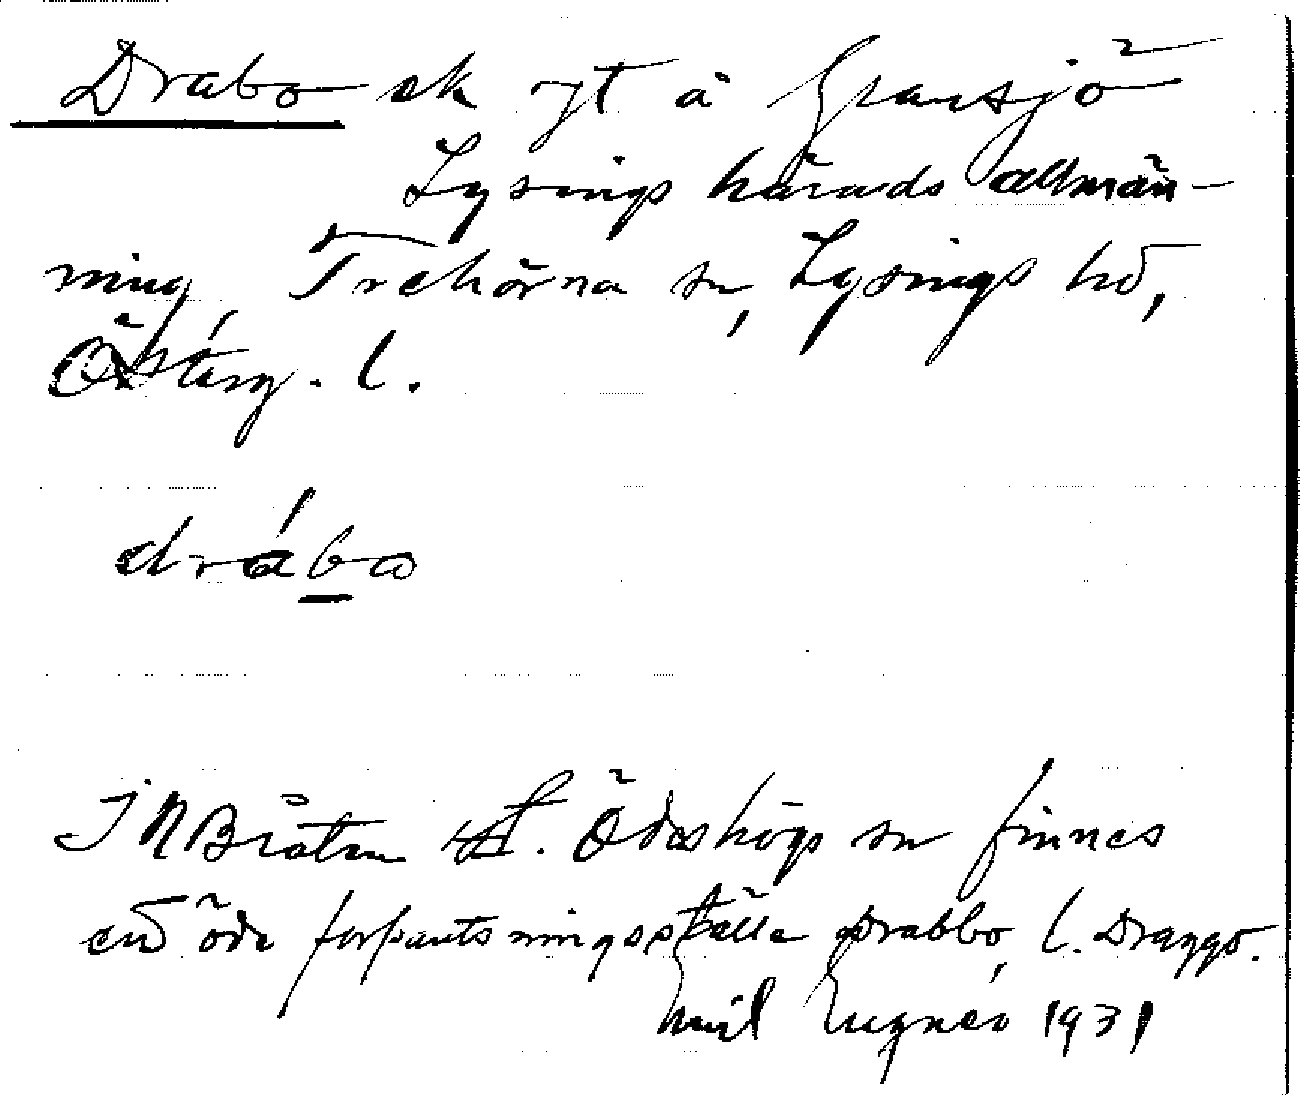 Drabo sk yt å Gransjö
Lysings härads allmän-
ning, Trehörna sn, Lysings hd,
Österg. l.
drábo
I N Bråten Ödeshögs sn finnes
ett öde förpantningsställe Drabbo, l. Draggo.
Emil 1931